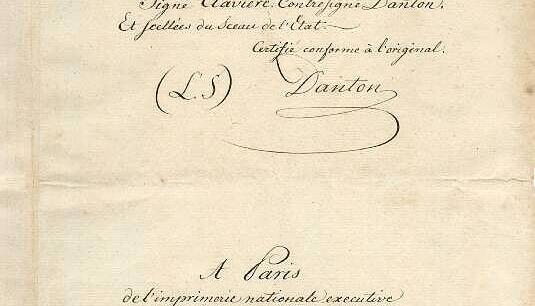 Signé Claviere. Contresigné Danton.
Et scellées du Sceau de l'Etat.
Certifié conforme à l'original.
(L.S) Danton
A Paris
de l'imprimerie nationale executive